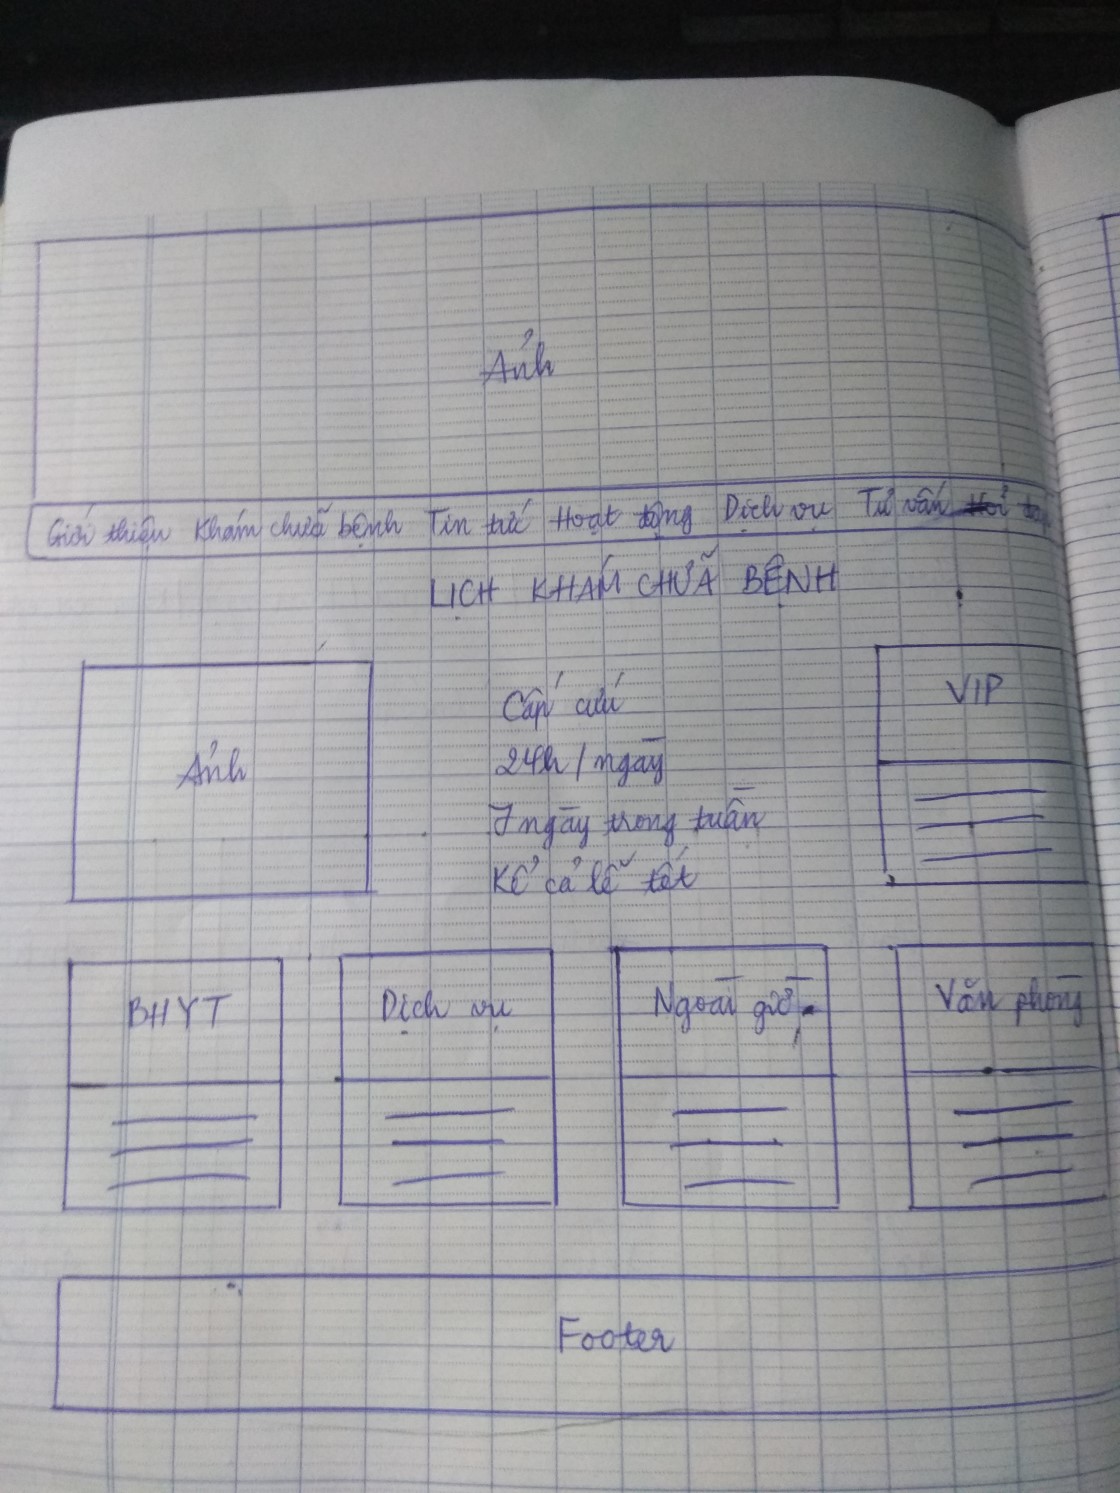 Ảnh
Giới thiệu Khám chữa bệnh Tin tức Hoạt động Dịch vụ Tư vấn
LỊCH KHÁM CHỮA BỆNH
Ảnh
Cấp cứu
24h/ngày
7 ngày trong tuần
Kể cả lễ tết
VIP
BHYT
Dịch vụ
Ngoài giờ
Văn phòng
Footer